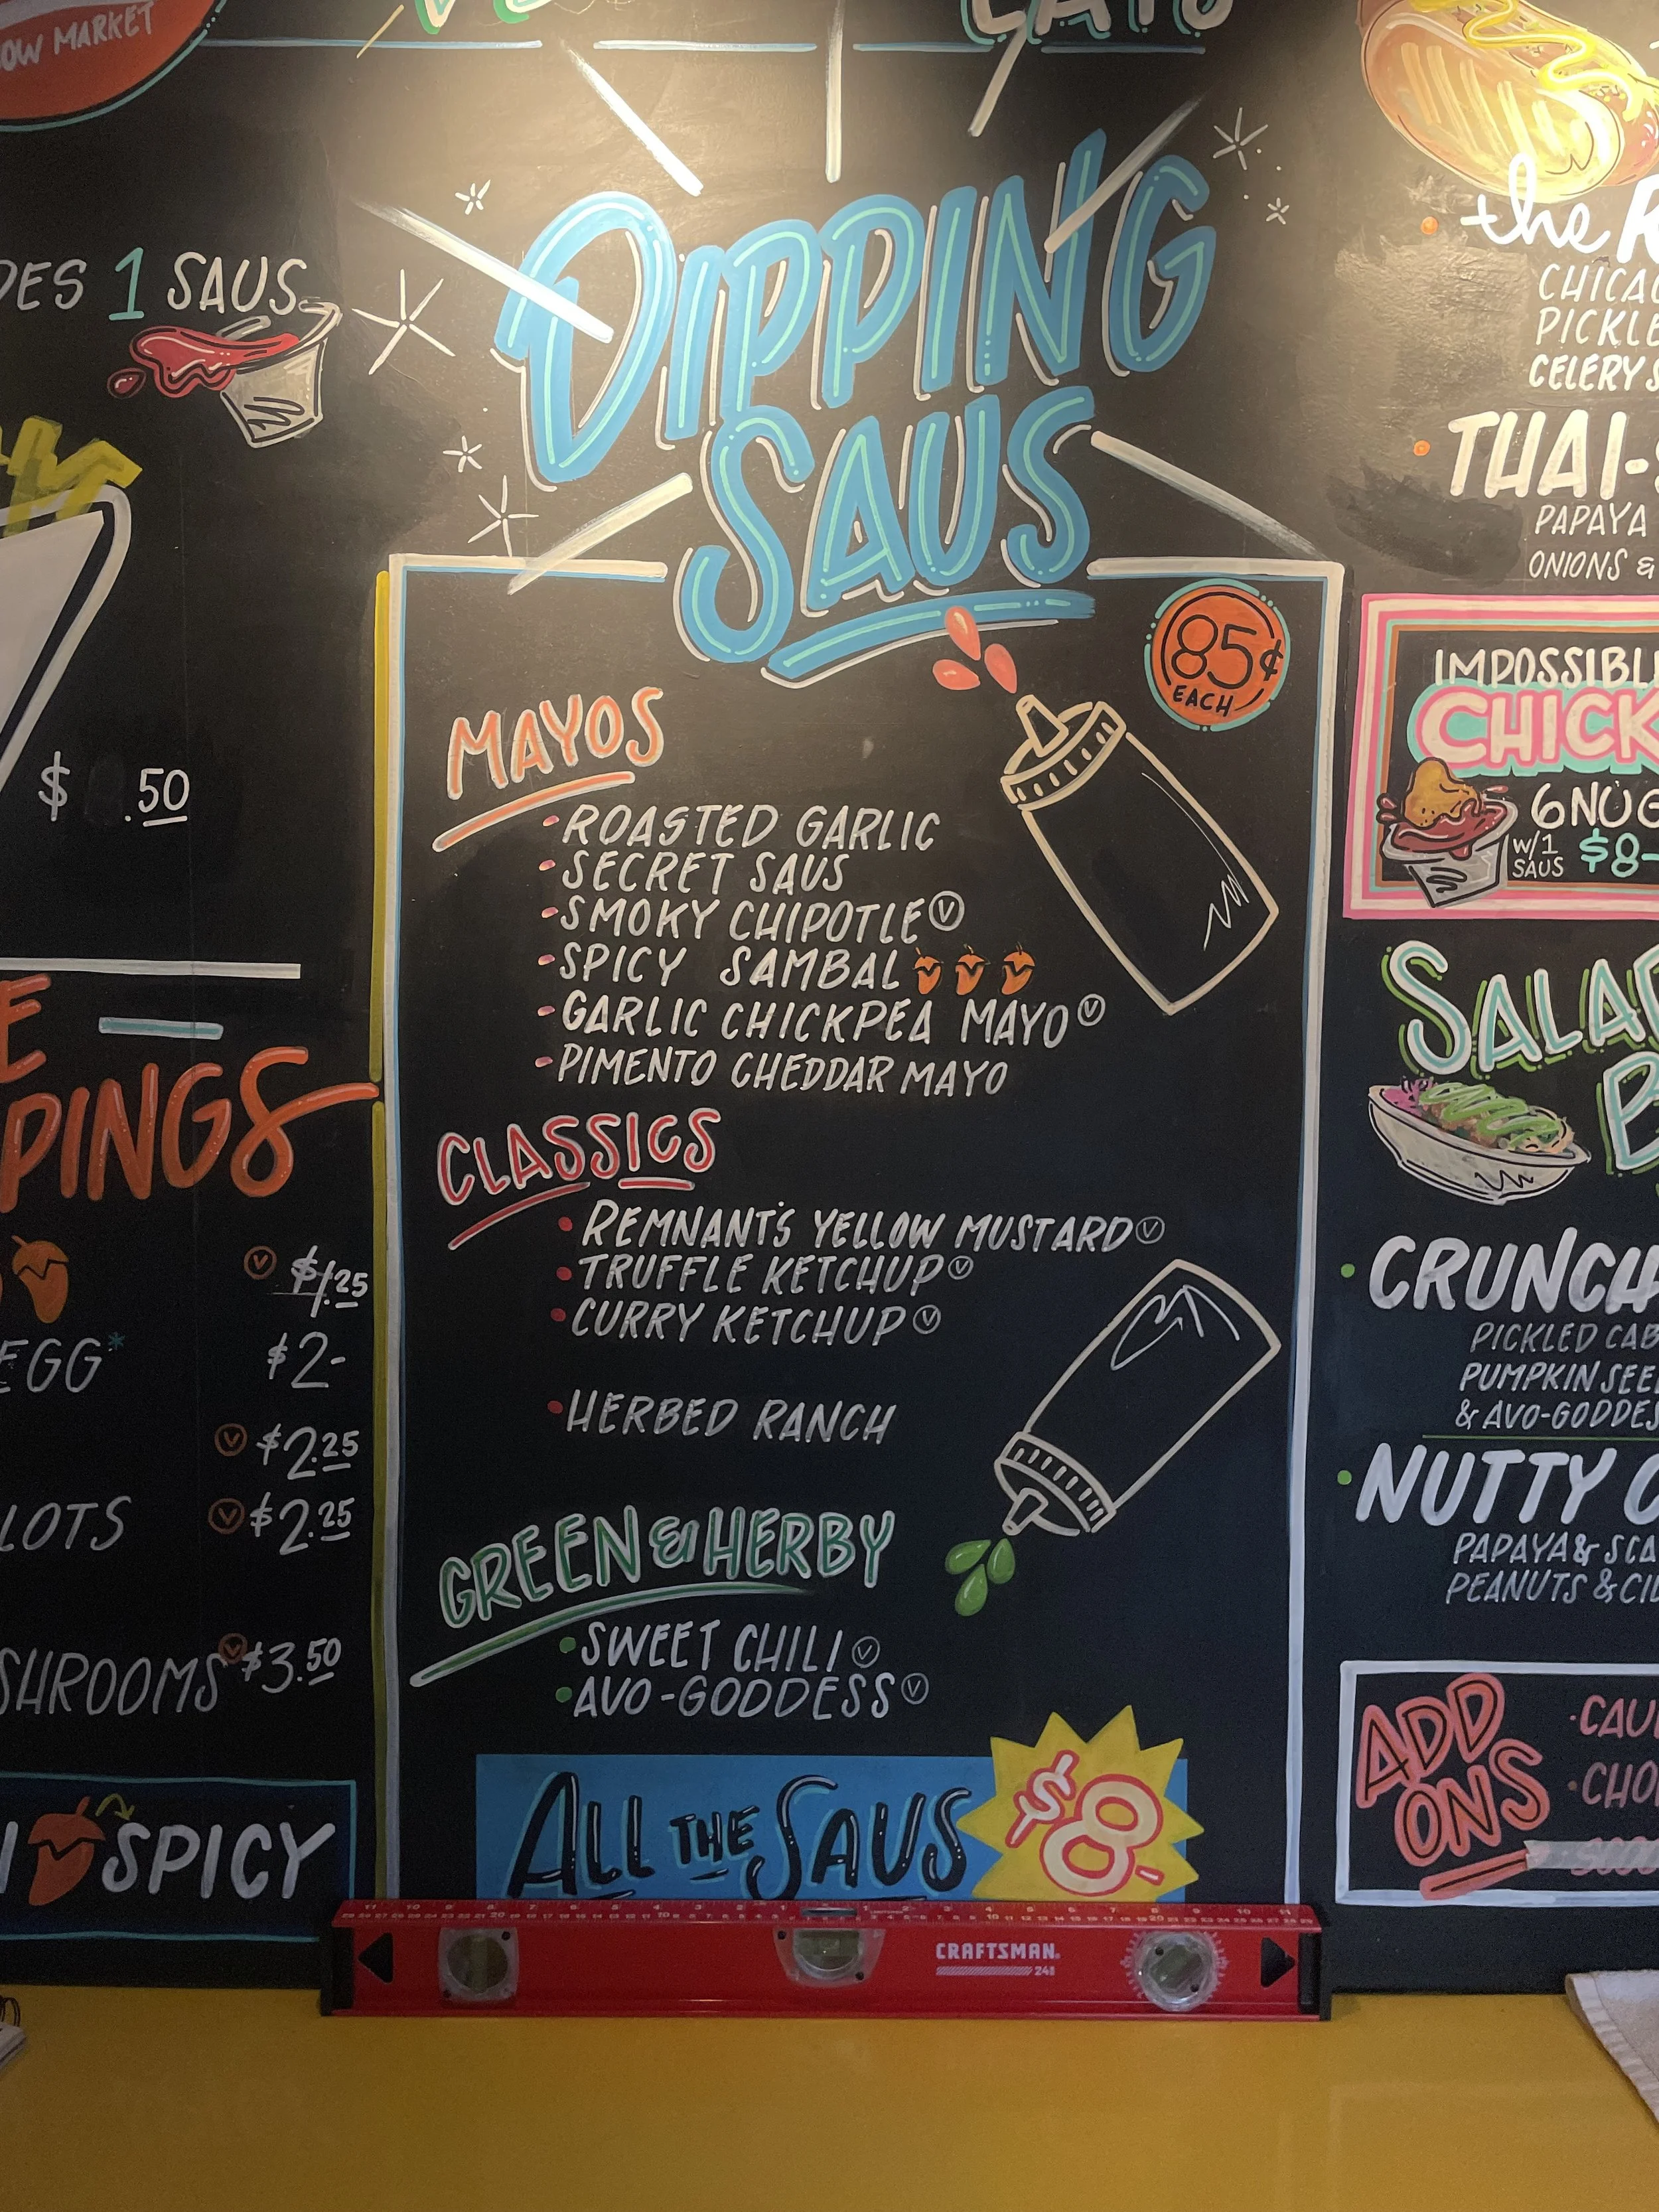 OW MARKET
DES 1 SAUS
$ .50
PINGS
$1.25
EGG* $2-
$2.25
LOTS $2.25
SHROOMS $3.50
SPICY
DIPPING
SAUS
85¢
EACH
MAYOS
-ROASTED GARLIC
-SECRET SAUS
-SMOKY CHIPOTLE Ⓥ
-SPICY SAMBAL
-GARLIC CHICKPEA MAYO Ⓥ
-PIMENTO CHEDDAR MAYO
CLASSICS
• REMNANT'S YELLOW MUSTARD Ⓥ
• TRUFFLE KETCHUP Ⓥ
• CURRY KETCHUP Ⓥ
• HERBED RANCH
GREEN & HERBY
• SWEET CHILI Ⓥ
• AVO-GODDESS Ⓥ
ALL THE SAUS $8-
CRAFTSMAN
24"
• the R
CHICAG
PICKLE
CELERY S
• THAI-S
PAPAYA
ONIONS &
IMPOSSIBL
CHICK
6 NUG
W/1
SAUS $8-
SALAD
B
• CRUNCH
PICKLED CAB
PUMPKIN SEE
& AVO-GODDES
• NUTTY
PAPAYA & SCA
PEANUTS & CIL
ADD
ONS
• CAU
• CHO